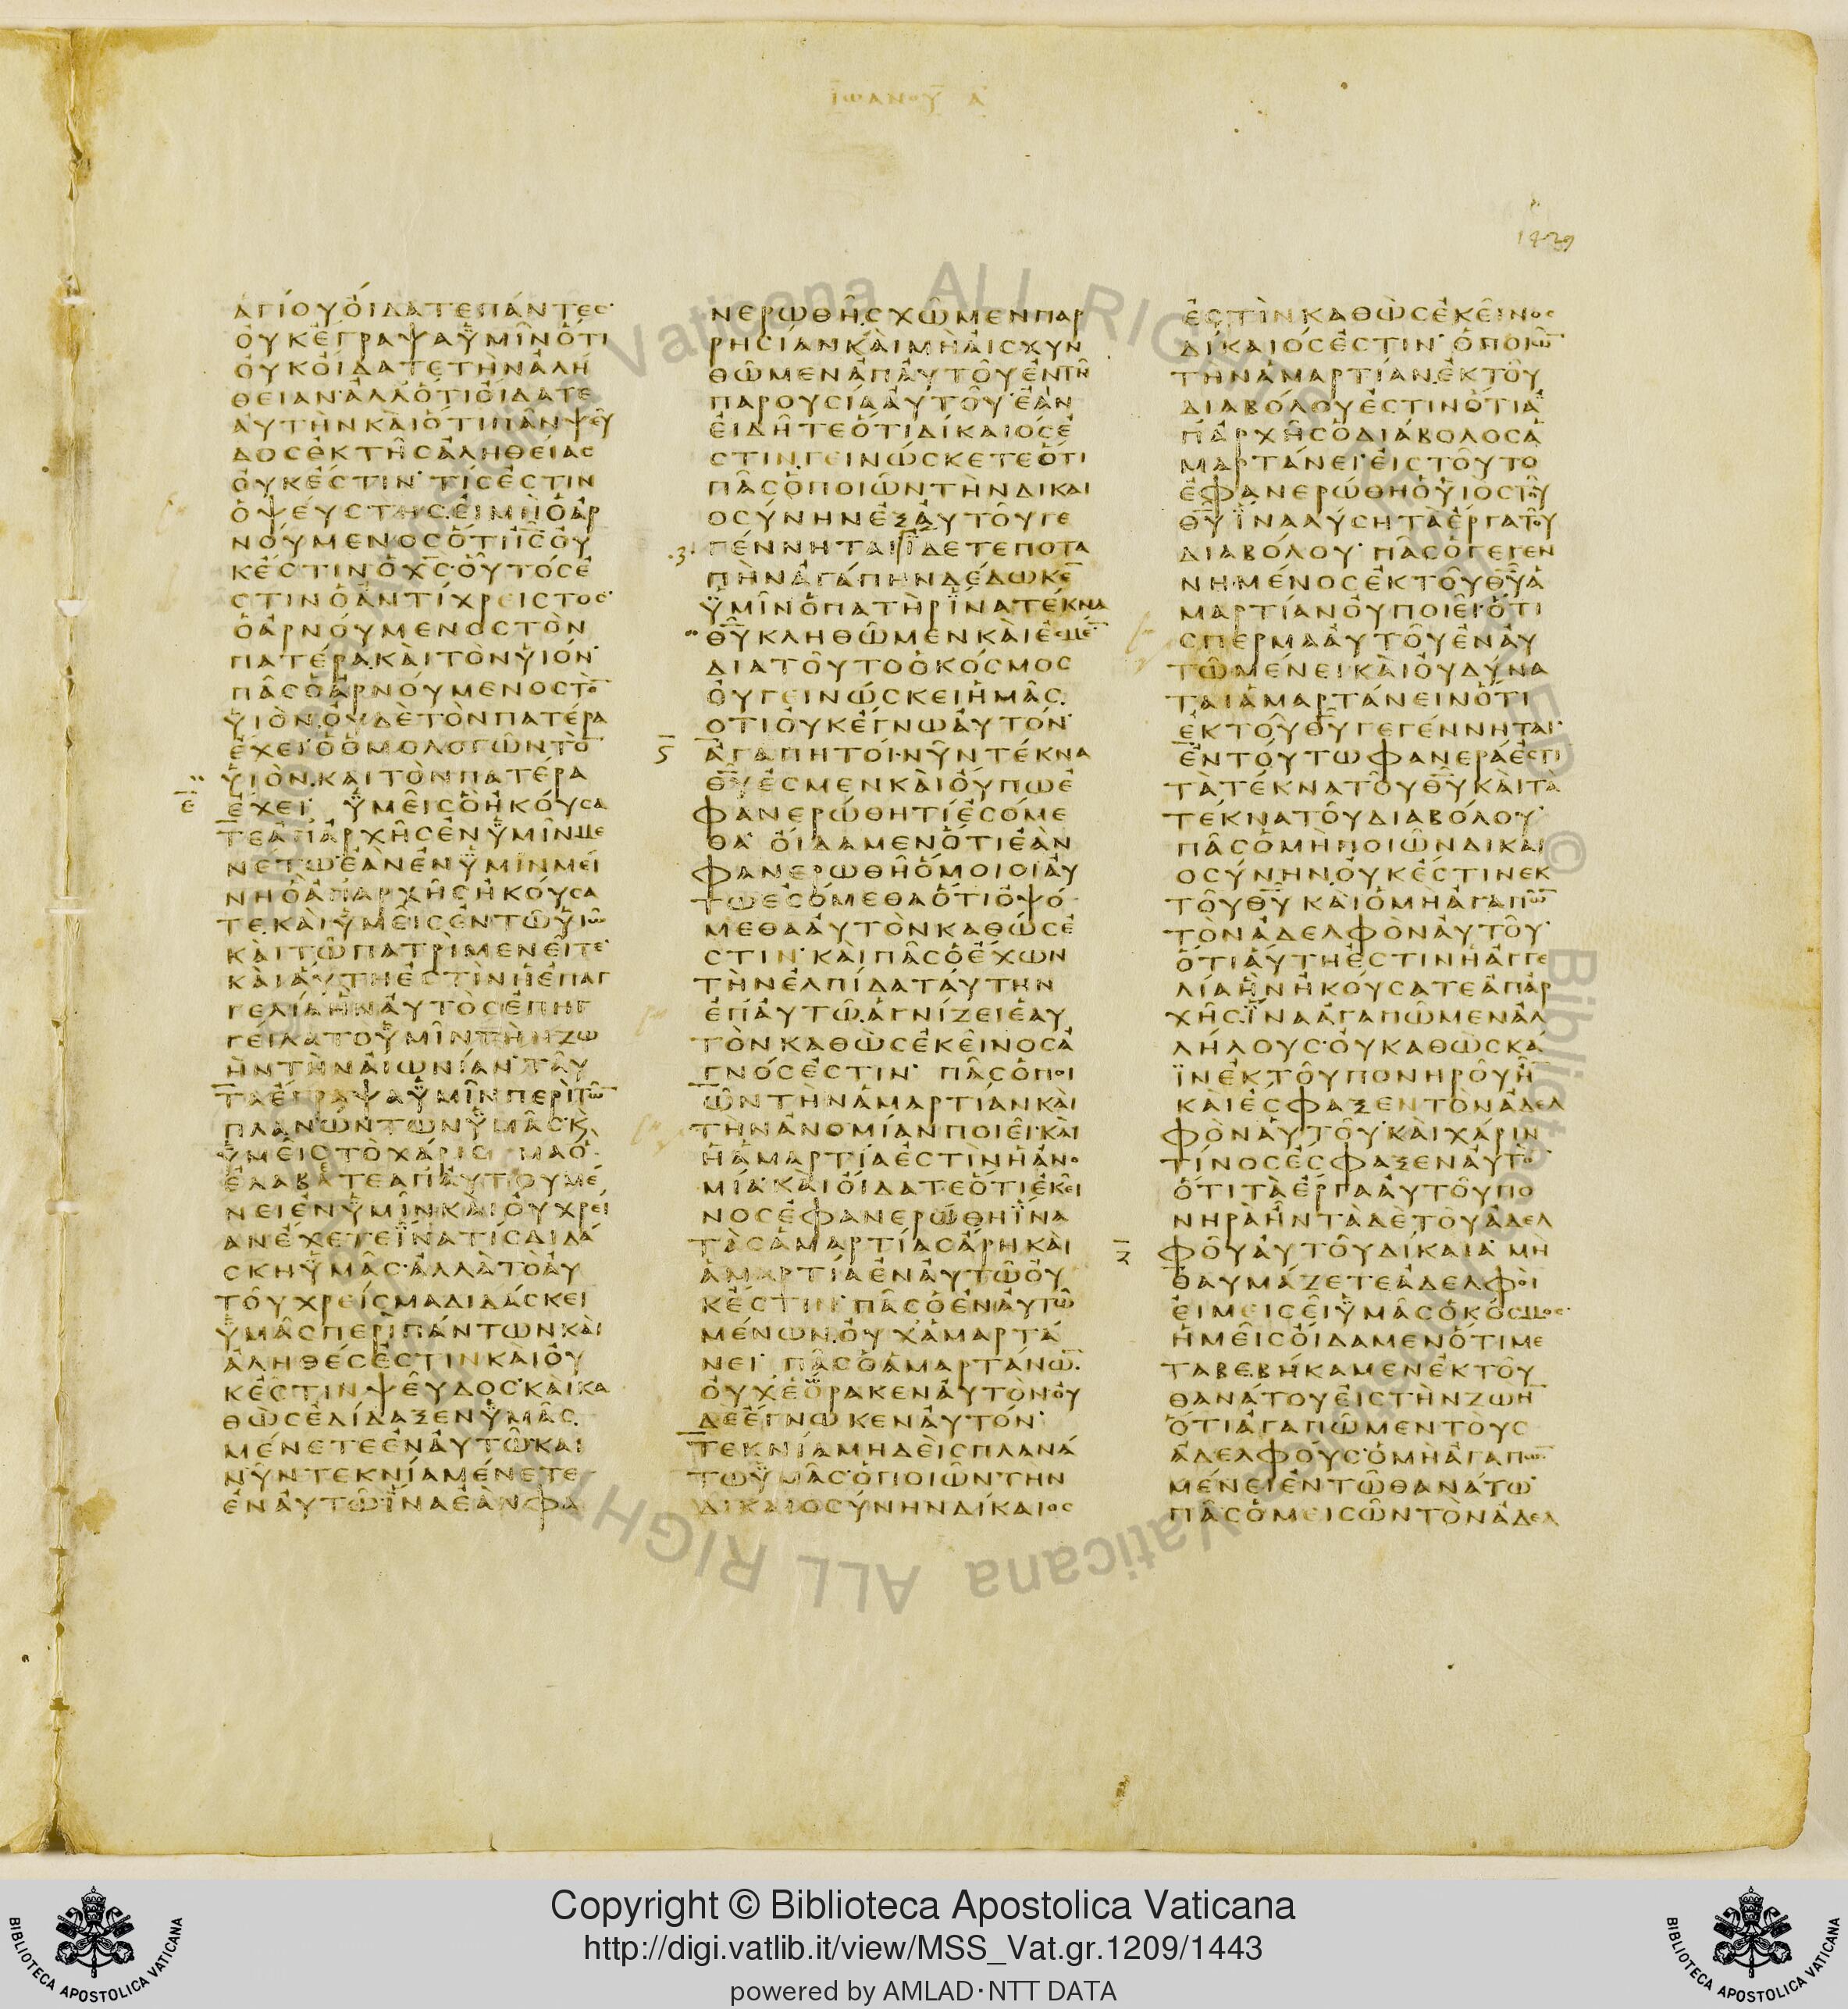 ΙΩΑΝΟΥ Α
1439
ΑΓΙΟΥΟΙΔΑΤΕΠΑΝΤΕΣ
ΟΥΚΕΓΡΑΨΑΫΜΙΝΟΤΙ
ΟΥΚΟΙΔΑΤΕΤΗΝΑΛΗ
ΘΕΙΑΝΑΛΛΟΤΙΟΙΔΑΤΕ
ΑΥΤΗΝΚΑΙΟΤΙΠΑΝΨΕΥ
ΔΟΣΕΚΤΗΣΑΛΗΘΕΙΑΣ
ΟΥΚΕΣΤΙΝ ΤΙΣΕΣΤΙΝ
ΟΨΕΥΣΤΗΣΕΙΜΗΟΑΡ
ΝΟΥΜΕΝΟΣΟΤΙΙ̅Σ̅ΟΥ
ΚΕΣΤΙΝΟΧ̅Σ̅ΟΥΤΟΣΕ
ΣΤΙΝΟΑΝΤΙΧΡΕΙΣΤΟΣ
ΟΑΡΝΟΥΜΕΝΟΣΤΟΝ
ΠΑΤΕΡΑΚΑΙΤΟΝΥΙΟΝ
ΠΑΣΟΑΡΝΟΥΜΕΝΟΣΤΟ̅
ΥΙΟΝΟΥΔΕΤΟΝΠΑΤΕΡΑ
ΕΧΕΙΟΟΜΟΛΟΓΩΝΤΟ̅
ΥΙΟΝΚΑΙΤΟΝΠΑΤΕΡΑ
Ε̅ ΕΧΕΙ ΫΜΕΙΣΟΗΚΟΥΣΑ
ΤΕΑΠΑΡΧΗΣΕΝΫΜΙΝΜΕ
ΝΕΤΩΕΑΝΕΝΫΜΙΝΜΕΙ
ΝΗΟΑΠΑΡΧΗΣΗΚΟΥΣΑ
ΤΕΚΑΙΫΜΕΙΣΕΝΤΩΥΙΩ
ΚΑΙΤΩΠΑΤΡΙΜΕΝΕΙΤΕ
ΚΑΙΑΥΤΗΕΣΤΙΝΗΕΠΑΓ
ΓΕΛΙΑΗΝΑΥΤΟΣΕΠΗΓ
ΓΕΙΛΑΤΟΫΜΙΝΤΗΝΖΩ
ΗΝΤΗΝΑΙΩΝΙΑΝ ΤΑΥ
ΤΑΕΓΡΑΨΑΫΜΙΝΠΕΡΙΤΩ̅
ΠΛΑΝΩΝΤΩΝΫΜΑΣΚ
ΫΜΕΙΣΤΟΧΑΡΙΣΜΑΟ
ΕΛΑΒΑΤΕΑΠΑΥΤΟΥΜΕ
ΝΕΙΕΝΫΜΙΝΚΑΙΟΥΧΡΕΙ
ΑΝΕΧΕΤΕΪΝΑΤΙΣΔΙΔΑ
ΣΚΗΫΜΑΣΑΛΛΑΤΟΑΥ
ΤΟΥΧΡΕΙΣΜΑΔΙΔΑΣΚΕΙ
ΫΜΑΣΠΕΡΙΠΑΝΤΩΝΚΑΙ
ΑΛΗΘΕΣΕΣΤΙΝΚΑΙΟΥ
ΚΕΣΤΙΝΨΕΥΔΟΣΚΑΙΚΑ
ΘΩΣΕΔΙΔΑΞΕΝΫΜΑΣ
ΜΕΝΕΤΕΕΝΑΥΤΩΚΑΙ
ΝΥΝΤΕΚΝΙΑΜΕΝΕΤΕ
ΕΝΑΥΤΩΪΝΑΕΑΝΦΑ
ΝΕΡΩΘΗΣΧΩΜΕΝΠΑΡ
ΡΗΣΙΑΝΚΑΙΜΗΑΙΣΧΥΝ
ΘΩΜΕΝΑΠΑΥΤΟΥΕΝΤΗ
ΠΑΡΟΥΣΙΑΑΥΤΟΥ ΕΑΝ
ΕΙΔΗΤΕΟΤΙΔΙΚΑΙΟΣΕ
ΣΤΙΝΓΕΙΝΩΣΚΕΤΕΟΤΙ
ΠΑΣΟΠΟΙΩΝΤΗΝΔΙΚΑΙ
ΟΣΥΝΗΝΕΞΑΥΤΟΥΓΕ
ΓΕΝΝΗΤΑΙΪΔΕΤΕΠΟΤΑ
ΠΗΝΑΓΑΠΗΝΔΕΔΩΚΕ̅
ΫΜΙΝΟΠΑΤΗΡΪΝΑΤΕΚΝΑ
Θ̅Υ̅ΚΛΗΘΩΜΕΝΚΑΙΕΣΜΕ̅
ΔΙΑΤΟΥΤΟΟΚΟΣΜΟΣ
ΟΥΓΕΙΝΩΣΚΕΙΗΜΑΣ
ΟΤΙΟΥΚΕΓΝΩΑΥΤΟΝ
Ϛ̅ ΑΓΑΠΗΤΟΙΝΥΝΤΕΚΝΑ
Θ̅Υ̅ΕΣΜΕΝΚΑΙΟΥΠΩΕ
ΦΑΝΕΡΩΘΗΤΙΕΣΟΜΕ
ΘΑ ΟΙΔΑΜΕΝΟΤΙΕΑΝ
ΦΑΝΕΡΩΘΗΟΜΟΙΟΙΑΥ
ΤΩΕΣΟΜΕΘΑΟΤΙΟΨΟ
ΜΕΘΑΑΥΤΟΝΚΑΘΩΣΕ
ΣΤΙΝ ΚΑΙΠΑΣΟΕΧΩΝ
ΤΗΝΕΛΠΙΔΑΤΑΥΤΗΝ
ΕΠΑΥΤΩΑΓΝΙΖΕΙΕΑΥ
ΤΟΝΚΑΘΩΣΕΚΕΙΝΟΣΑ
ΓΝΟΣΕΣΤΙΝ ΠΑΣΟΠΟΙ
ΩΝΤΗΝΑΜΑΡΤΙΑΝΚΑΙ
ΤΗΝΑΝΟΜΙΑΝΠΟΙΕΙΚΑΙ
ΗΑΜΑΡΤΙΑΕΣΤΙΝΗΑΝΟ
ΜΙΑΚΑΙΟΙΔΑΤΕΟΤΙΕΚΕΙ
ΝΟΣΕΦΑΝΕΡΩΘΗΪΝΑ
ΤΑΣΑΜΑΡΤΙΑΣΑΡΗΚΑΙ
ΑΜΑΡΤΙΑΕΝΑΥΤΩΟΥ
ΚΕΣΤΙΝ ΠΑΣΟΕΝΑΥΤΩ
ΜΕΝΩΝΟΥΧΑΜΑΡΤΑ
ΝΕΙ ΠΑΣΟΑΜΑΡΤΑΝΩ̅
ΟΥΧΕΟΡΑΚΕΝΑΥΤΟΝΟΥ
ΔΕΕΓΝΩΚΕΝΑΥΤΟΝ
ΤΕΚΝΙΑΜΗΔΕΙΣΠΛΑΝΑ
ΤΩΫΜΑΣΟΠΟΙΩΝΤΗΝ
ΔΙΚΑΙΟΣΥΝΗΝΔΙΚΑΙΟΣ
ΕΣΤΙΝΚΑΘΩΣΕΚΕΙΝΟΣ
ΔΙΚΑΙΟΣΕΣΤΙΝ ΟΠΟΙΩ̅
ΤΗΝΑΜΑΡΤΙΑΝΕΚΤΟΥ
ΔΙΑΒΟΛΟΥΕΣΤΙΝΟΤΙΑ
ΠΑΡΧΗΣΟΔΙΑΒΟΛΟΣΑ
ΜΑΡΤΑΝΕΙΕΙΣΤΟΥΤΟ
ΕΦΑΝΕΡΩΘΗΟΥΙΟΣΤΟΥ
Θ̅Υ̅ΪΝΑΛΥΣΗΤΑΕΡΓΑΤΟΥ
ΔΙΑΒΟΛΟΥ ΠΑΣΟΓΕΓΕΝ
ΝΗΜΕΝΟΣΕΚΤΟΥΘ̅Υ̅Α
ΜΑΡΤΙΑΝΟΥΠΟΙΕΙΟΤΙ
ΣΠΕΡΜΑΑΥΤΟΥΕΝΑΥ
ΤΩΜΕΝΕΙΚΑΙΟΥΔΥΝΑ
ΤΑΙΑΜΑΡΤΑΝΕΙΝΟΤΙ
ΕΚΤΟΥΘ̅Υ̅ΓΕΓΕΝΝΗΤΑΙ
ΕΝΤΟΥΤΩΦΑΝΕΡΑΕΣΤΙ
ΤΑΤΕΚΝΑΤΟΥΘ̅Υ̅ΚΑΙΤΑ
ΤΕΚΝΑΤΟΥΔΙΑΒΟΛΟΥ
ΠΑΣΟΜΗΠΟΙΩΝΔΙΚΑΙ
ΟΣΥΝΗΝΟΥΚΕΣΤΙΝΕΚ
ΤΟΥΘ̅Υ̅ΚΑΙΟΜΗΑΓΑΠΩ̅
ΤΟΝΑΔΕΛΦΟΝΑΥΤΟΥ
ΟΤΙΑΥΤΗΕΣΤΙΝΗΑΓΓΕ
ΛΙΑΗΝΗΚΟΥΣΑΤΕΑΠΑΡ
ΧΗΣΪΝΑΑΓΑΠΩΜΕΝΑΛ
ΛΗΛΟΥΣΟΥΚΑΘΩΣΚΑ
ΪΝΕΚΤΟΥΠΟΝΗΡΟΥΗ̅
ΚΑΙΕΣΦΑΞΕΝΤΟΝΑΔΕΛ
ΦΟΝΑΥΤΟΥΚΑΙΧΑΡΙΝ
ΤΙΝΟΣΕΣΦΑΞΕΝΑΥΤΟ̅
ΟΤΙΤΑΕΡΓΑΑΥΤΟΥΠΟ
ΝΗΡΑΗΝΤΑΔΕΤΟΥΑΔΕΛ
Ζ̅ ΦΟΥΑΥΤΟΥΔΙΚΑΙΑ ΜΗ
ΘΑΥΜΑΖΕΤΕΑΔΕΛΦΟΙ
ΕΙΜΕΙΣΕΙΫΜΑΣΟΚΟΣΜΟΣ
ΗΜΕΙΣΟΙΔΑΜΕΝΟΤΙΜΕ
ΤΑΒΕΒΗΚΑΜΕΝΕΚΤΟΥ
ΘΑΝΑΤΟΥΕΙΣΤΗΝΖΩΗ̅
ΟΤΙΑΓΑΠΩΜΕΝΤΟΥΣ
ΑΔΕΛΦΟΥΣΟΜΗΑΓΑΠΩ̅
ΜΕΝΕΙΕΝΤΩΘΑΝΑΤΩ
ΠΑΣΟΜΕΙΣΩΝΤΟΝΑΔΕΛ
Copyright © Biblioteca Apostolica Vaticana
http://digi.vatlib.it/view/MSS_Vat.gr.1209/1443
powered by AMLAD·NTT DATA
BIBLIOTECA APOSTOLICA VATICANA
BIBLIOTECA APOSTOLICA VATICANA